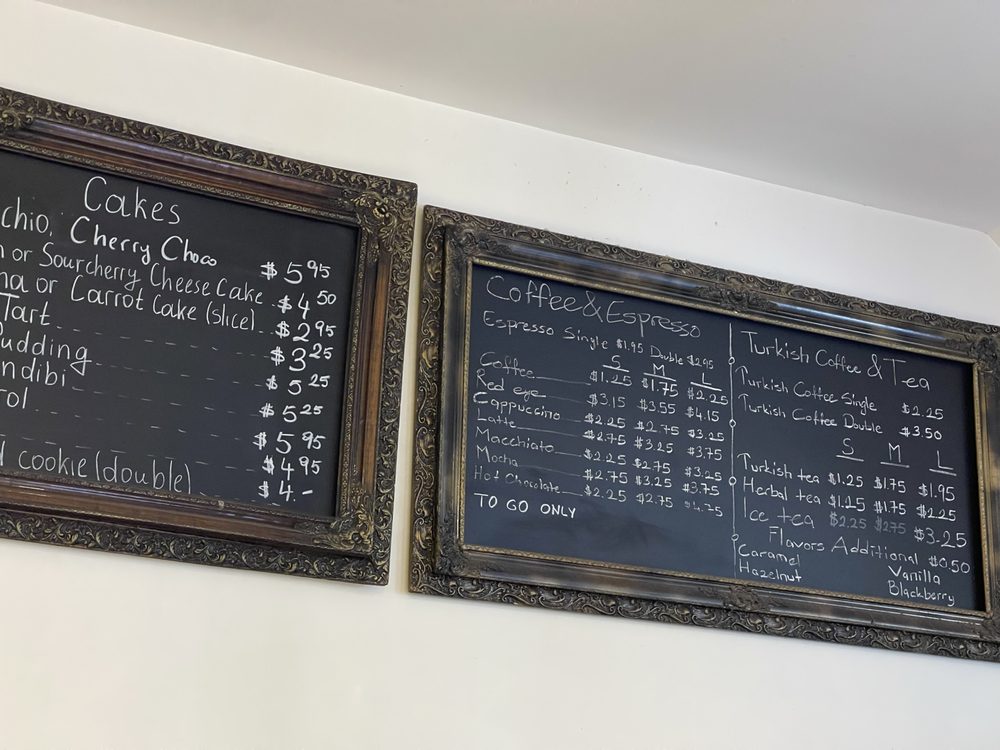 Cakes
chio, Cherry Choco $5.95
or Sourcherry Cheese Cake $4.50
na or Carrot Cake (slice) $2.95
Tart $3.25
udding $5.25
ndibi $5.25
rol $5.95
$4.95
cookie (double) $4.-
Coffee & Espresso
Espresso Single $1.95 Double $2.95
S M L
Coffee $1.25 $1.75 $2.25
Red eye $3.15 $3.55 $4.15
Cappuccino $2.25 $2.75 $3.25
Latte $2.75 $3.25 $3.75
Macchiato $2.25 $2.75 $3.25
Mocha $2.75 $3.25 $3.75
Hot Chocolate $2.25 $2.75 $4.25
TO GO ONLY
Turkish Coffee & Tea
Turkish Coffee Single $2.25
Turkish Coffee Double $3.50
S M L
Turkish tea $1.25 $1.75 $1.95
Herbal tea $1.25 $1.75 $2.25
Ice tea $2.25 $2.75 $3.25
Flavors Additional $0.50
Caramel Vanilla
Hazelnut Blackberry